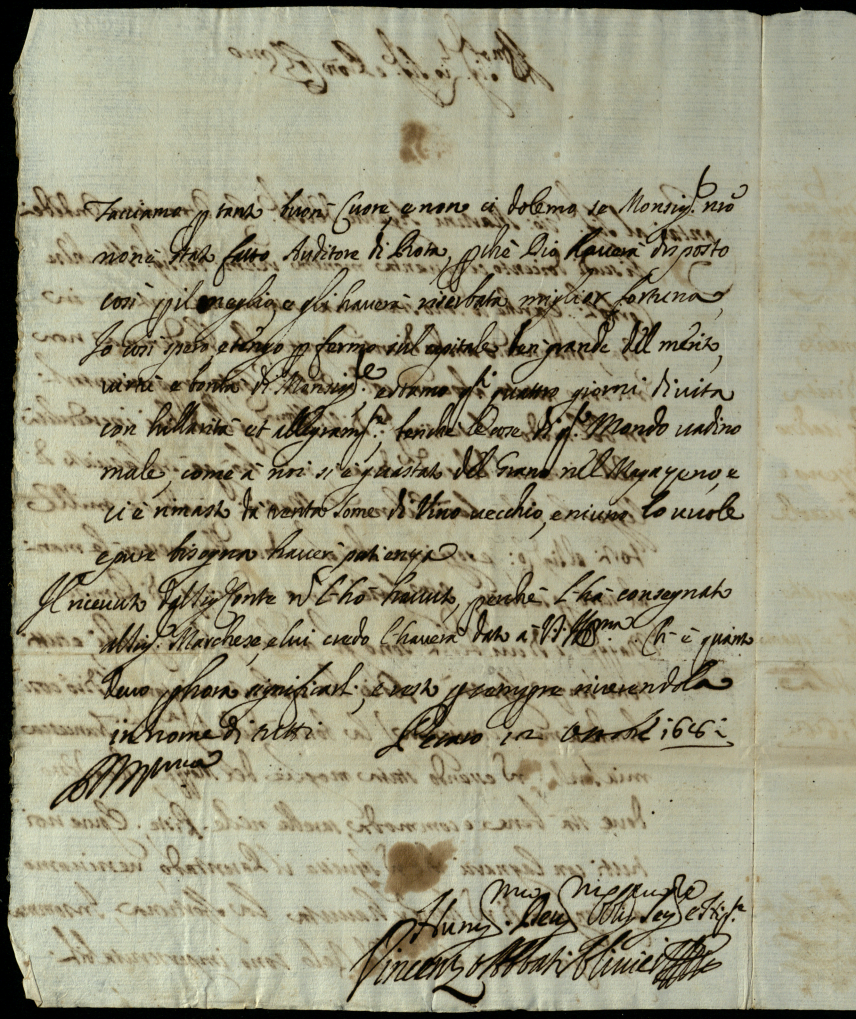 facciamo p tanto buon Cuore, e non ci dolemo se Monsig.r nro
non è stato fatto Auditore di Rota, pche Dio haverà disposto
così p il meglio, e gli haverà riserbata miglior fortuna,
Io così spero, e tengo p fermo sul capitale ben grande del merito,
virtù e bontà di Monsig.re, e stiamo q.ti quattro giorni di vita
con hillarità et allegram.te, benche le cose di q.to Mondo vadino
male, come à noi si è guastato del Grano nel Magazeno, e
ci è rimasto da trenta some di Vino vecchio, e niuno lo vuole
e pure bisogna haver patienza
Il ricevuto dal Sig. Conte n l'hò havuto, perche l'hà consegnato
al Sig. Marchese, e lui credo l'haverà dato a V.S. Ill.ma. Ch'è quanto
devo p hora significarle, e resto p sempre riverendola
in nome di tutti Pesaro 12 Ottobre
mio
Vincenzo Abbati Olivieri